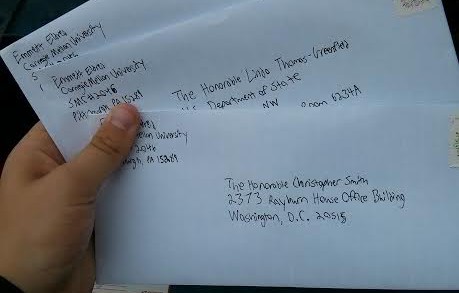 Emmett Eldred
Carnegie Mellon University
S
Emmett Eldred
Carnegie Mellon University
SMC #2046
Pittsburgh, PA
The Honorable Linda Thomas-Greenfield
Department of State
NW Room 6234A
University
20th
burgh, PA 15289
The Honorable Christopher Smith
2373 Rayburn House Office Building
Washington, D.C. 20515